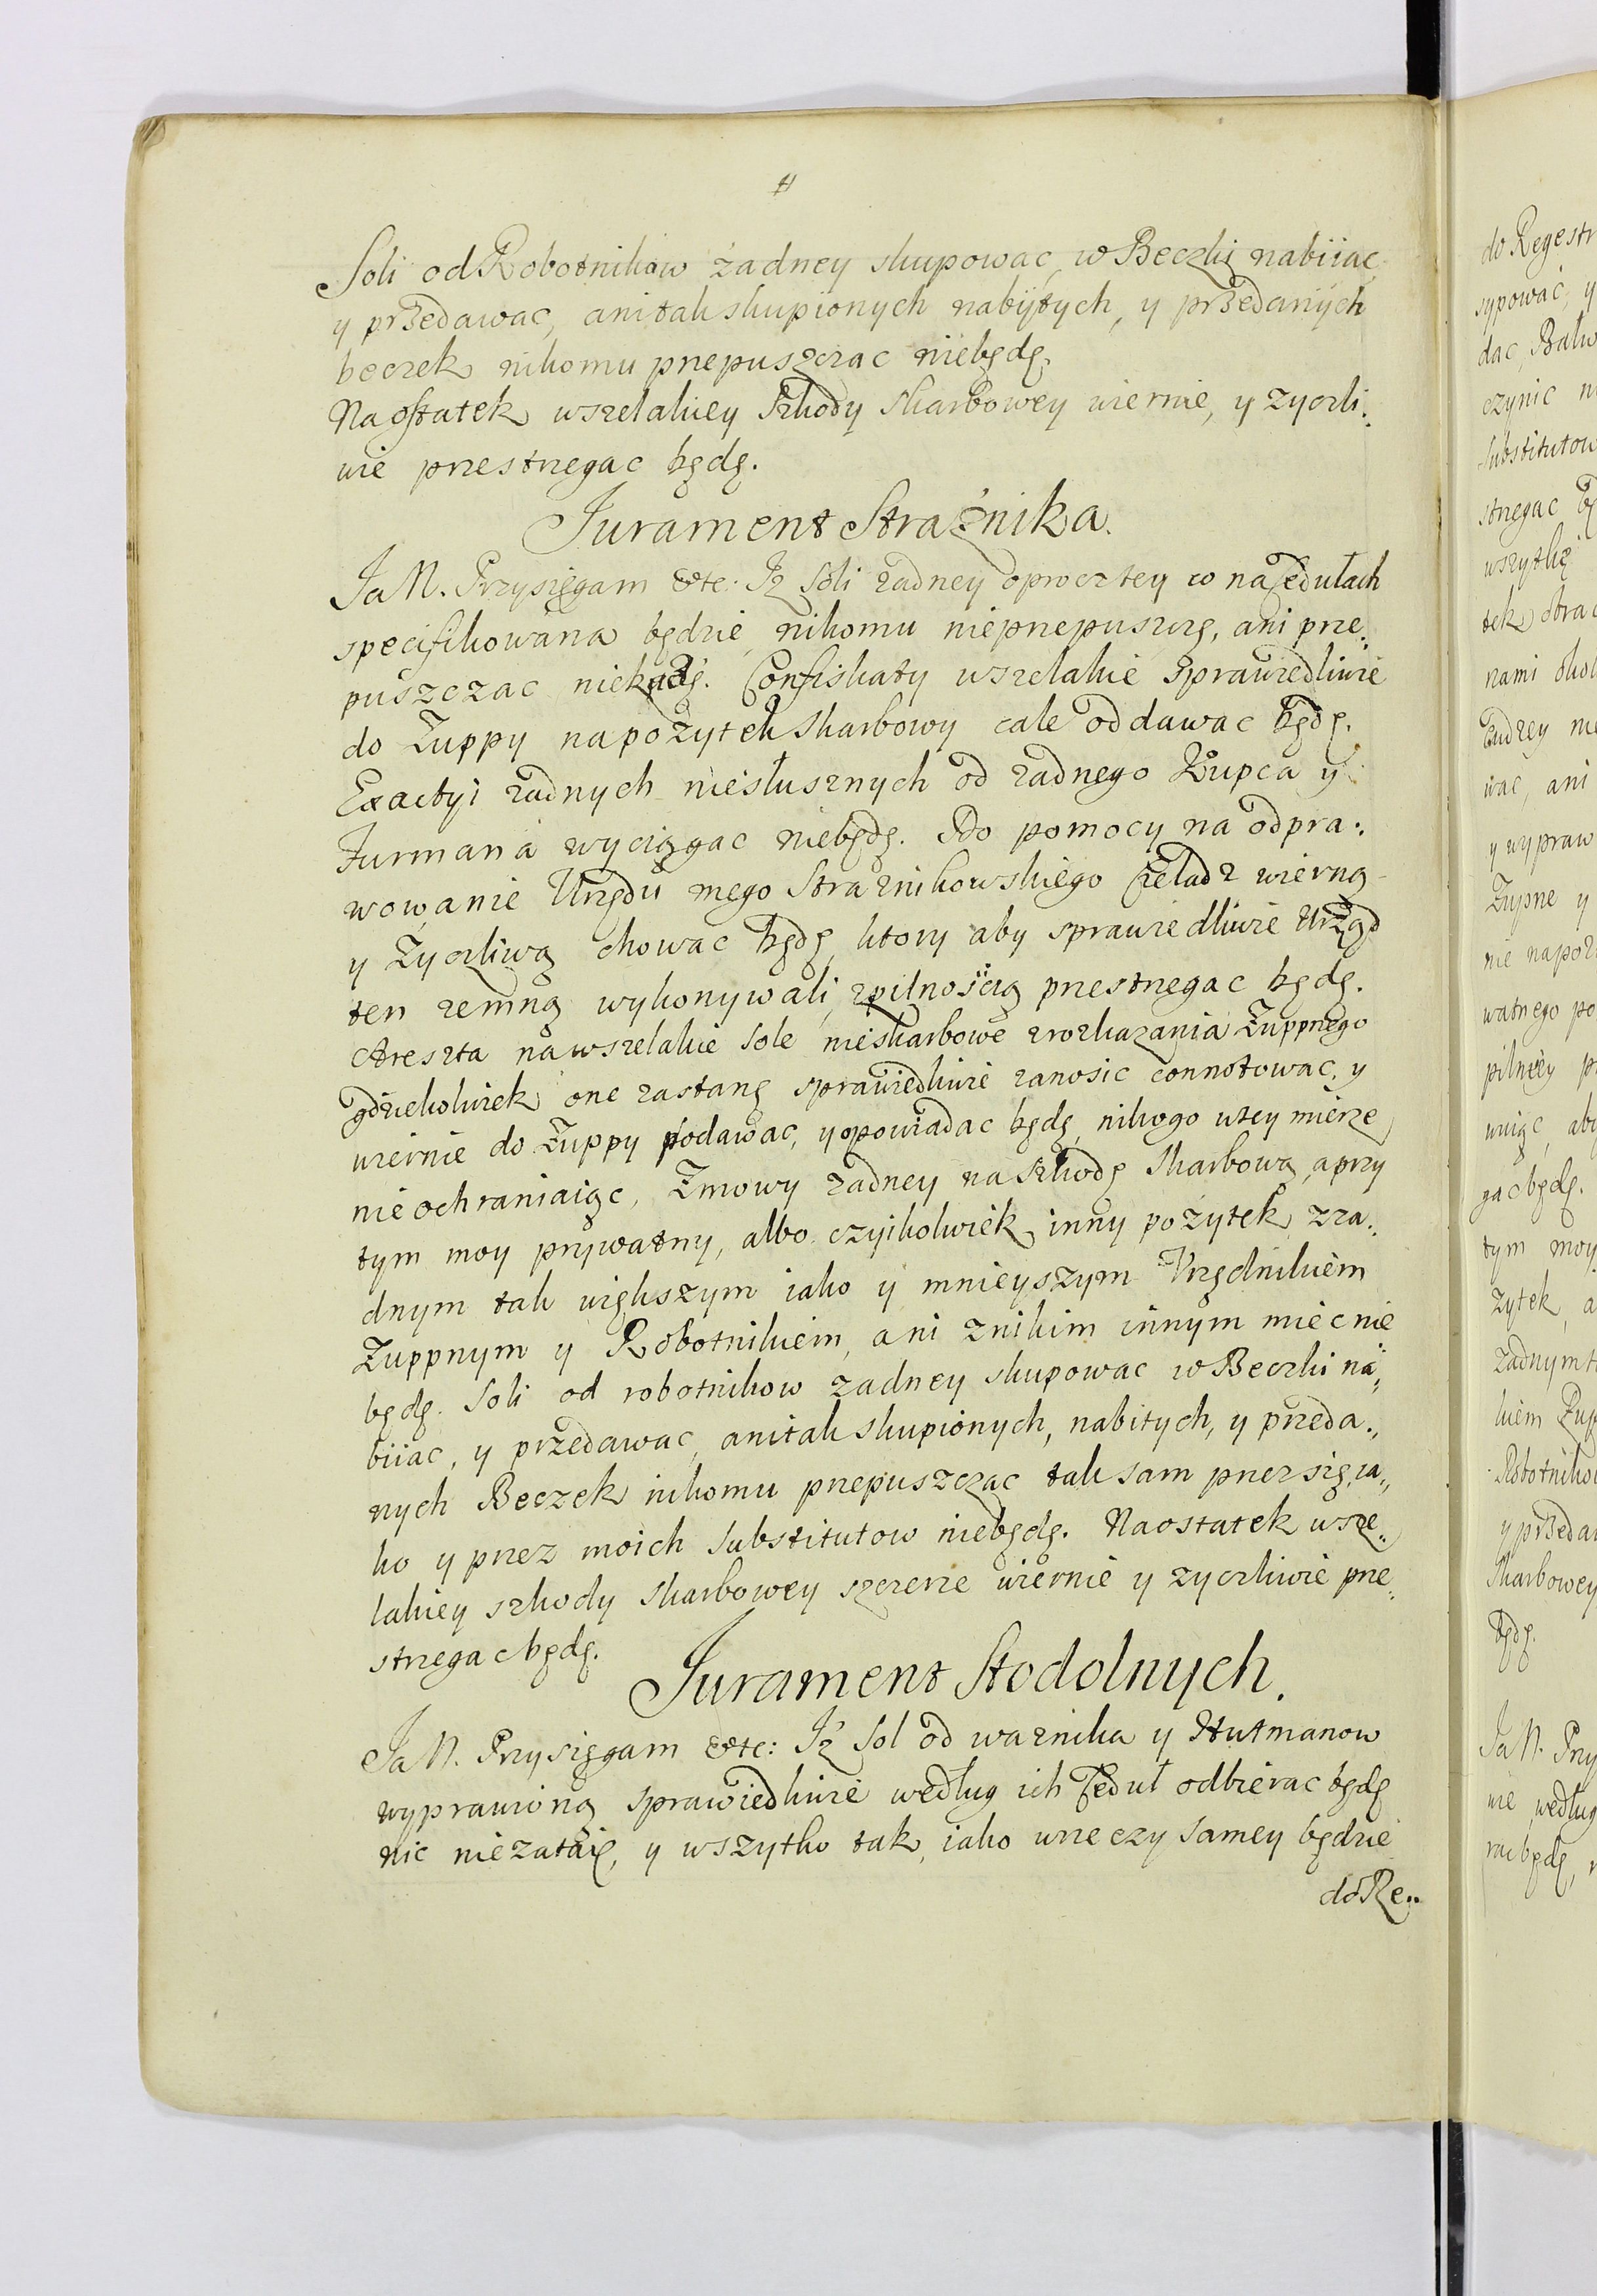 Soli od Robotnikow żadney skupowac, w Beczki nabiiac
y przedawac, anitak skupionych nabÿtych, y przedanÿch
beczek nikomu przepuszczac niebędę.
Na ostatek wszelakiey szkody skarbowey wiernie, y zyczli:
wie przestrzegac będę.
Jurament Strażnika.
Ja N. Przysięgam &tc: Iz soli zadney oprocz tey co na cedułach
specifikowana będzie, nikomu nieprzepuszczę, ani prze:
puszczac niekażę. Confiskaty wszelakie sprawiedliwie
do Żuppy na pożytek skarbowy cale oddawac będę.
Exactyi zadnych niesłusznych od zadnego Kupca y
Furmana wyciągac niebędę. Do pomocy na odpra:
wowanie Urzędu mego Straznikowskiego Czeladz wierną
y Zyczliwą chowac będę, ktory aby sprawiedliwie Urząd
ten zemną wykonywali, zpilnością przestrzegac będę.
Areszta na wszelakie sole nieskarbowe zrozkazania Żuppnego
gdziekolwiek one zastanę sprawiedliwie zanosic connotowac, y
wiernie do Żuppy podawac, y opowiadac będę, nikogo wtey mierze
nie ochraniaiąc, Zmowy zadney na szkodę skarbową, a przy
tym moy prywatny, albo czyikolwiek inny pożytek zza:
dnym tak większym iako y mnieyszym Vrzędnikiem
Żuppnym y Robotnikiem, ani znikim innym miec nie
będę. Soli od robotnikow zadney skupowac w Beczki na:
biiac, y przedawac, anitak skupionych, nabitych, y przeda:
nych Beczek nikomu przepuszczac tak sam przez się, ia:
ko y przez moich substitutow niebędę. Naostatek wsze:
lakiey szkody skarbowey szczerze wiernie y zyczliwie prze:
strzegac będę.
Jurament Stodolnych.
Ja N. Przysięgam &tc: Iż sol od waznika y Hutmanow
wyprawioną sprawiedliwie według ich Ceduł odbierac będę
nic niezataię, y wszytko tak, iako wrzeczy samey będzie
do Re:
do Regestr
sypowac, y
dac, Bałw
czynic n
substitutow
strzegac bę
wszytkię
tek strac
nami okol
Cudzey nie
wac, ani
y wypraw
Żupne y
nie napoz
watnego po
pilniey p
wuiąc, aby
gac będę.
tym moy
zytek, a
zadnym t
kiem Żup
Robotniko
y przeda
skarbowey
będę.
Ja N. Przy
wie według
rac będę, n